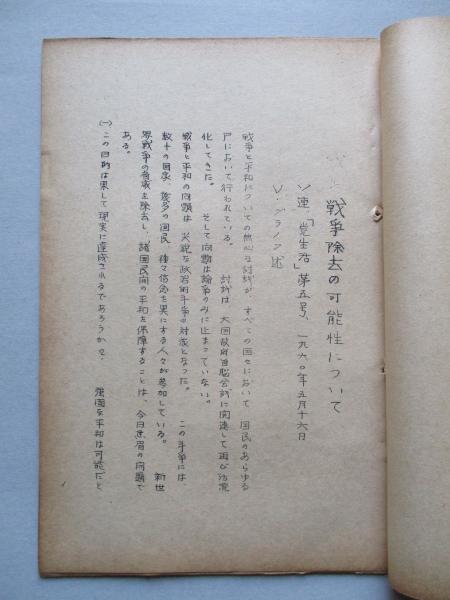 戦争除去の可能性について
ソ連「党生活」第五号、一九六〇年五月十六日
V・グラノフ述
戦争と平和についての熱心な討議が、すべての国々において国民のあらゆる
戸において行われている。 討議は大国政府首脳会談に関連して再び活溌
化してきた。 そして問題は論争のみに止まっていない。
戦争と平和の問題は尖鋭な政治的斗争の対象となった。 この斗争には、
数十の国家、幾多の国民、種々信念を異にする人々が参加している。 新世
界戦争の脅威を除去し、諸国民間の平和を保障することは、今日焦眉の問題で
ある。
(一)この目的は果して現実に達成されるであろうか? 強固な平和は可能だと